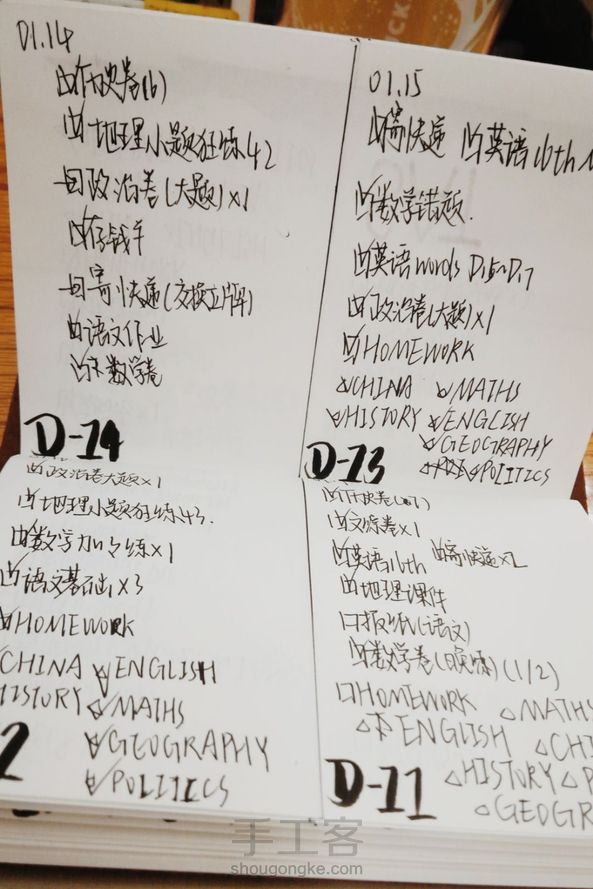 01.14
地理小题狂练42
政治卷(大题)×1
存钱
寄快递(交换立牌)
语文作业
数学卷
D-14
01.15
寄快递 英语16th
数学错题.
英语words D15~D17
政治卷(大题)×1
HOMEWORK
CHINA MATHS
HISTORY ENGLISH
GEOGRAPHY
POLITICS
D-13
政治卷大题×1
地理小题狂练43.
数学加 练×1
语文基础×3
HOMEWORK
CHINA ENGLISH
HISTORY MATHS
GEOGRAPHY
POLITICS
2
文综卷×1
英语16th 寄快递×2
地理课件
报纸(语文)
数学卷 (1/2)
HOMEWORK MATHS
ENGLISH CHI
HISTORY P
GEOGR
D-11
手工客
shougongke.com